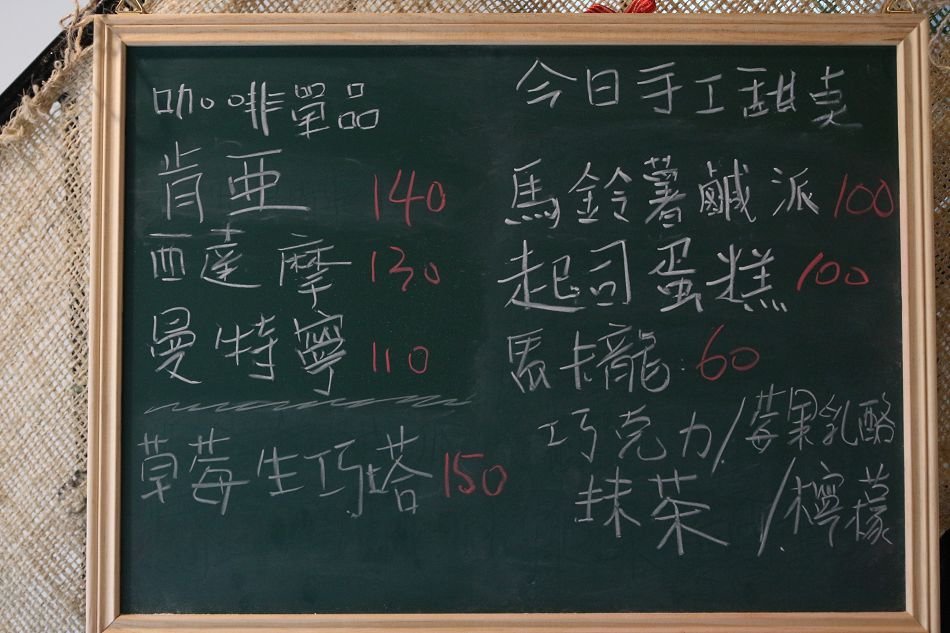 咖啡單品
肯亞 140
西達摩 130
曼特寧 110
草莓生巧塔 150
今日手工甜点
馬鈴薯鹹派 100
起司蛋糕 100
馬卡龍:60
巧克力/莓果乳酪
抹茶/檸檬